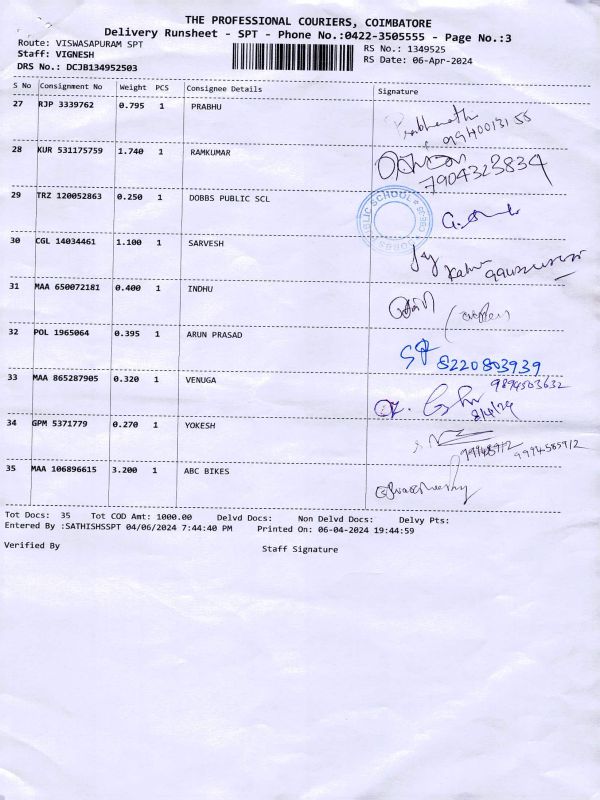 THE PROFESSIONAL COURIERS, COIMBATORE
Delivery Runsheet - SPT - Phone No.:0422-3505555 - Page No.:3
Route: VISWASAPURAM SPT
RS No.: 1349525
Staff: VIGNESH
RS Date: 06-Apr-2024
DRS No.: DCJB134952503
S No Consignment No Weight PCS Consignee Details Signature
27 RJP 3339762 0.795 1 PRABHU
28 KUR 531175759 1.740 1 RAMKUMAR
7904323834
29 TRZ 120052863 0.250 1 DOBBS PUBLIC SCL
PUBLIC SCHOOL
30 CGL 14034461 1.100 1 SARVESH
31 MAA 650072181 0.400 1 INDHU
32 POL 1965064 0.395 1 ARUN PRASAD
8220803939
33 MAA 865287905 0.320 1 VENUGA
9894503632
34 GPM 5371779 0.270 1 YOKESH
9994585912
35 MAA 106896615 3.200 1 ABC BIKES
Tot Docs: 35 Tot COD Amt: 1000.00 Delvd Docs: Non Delvd Docs: Delvy Pts:
Entered By :SATHISHSSPT 04/06/2024 7:44:40 PM Printed On: 06-04-2024 19:44:59
Verified By Staff Signature